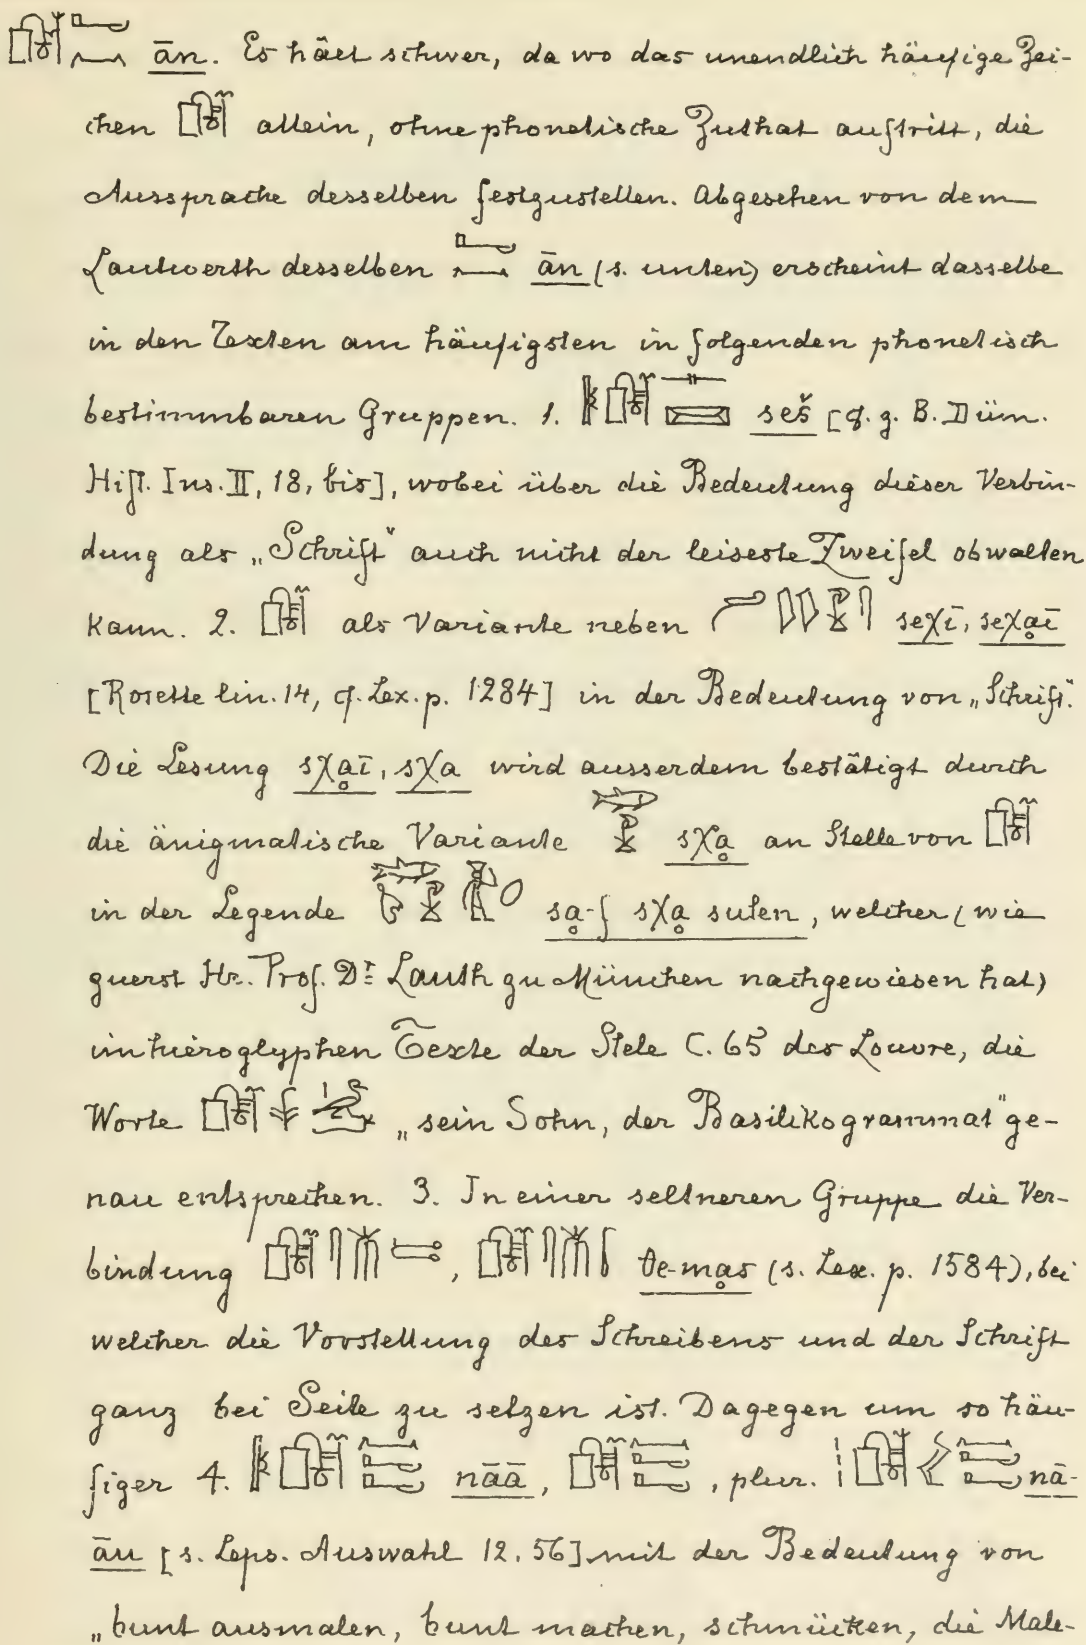 ān. Es hält schwer, da wo das unendlich häufige Zei-
chen allein, ohne phonetische Zuthat auftritt, die
Aussprache desselben festzustellen. Abgesehen von dem
Lautwerth desselben ān (s. unten) erscheint dasselbe
in den Texten am häufigsten in folgenden phonetisch
bestimmbaren Gruppen. 1. seš [z. B. Düm.
Hist. Ins. II, 18, bis], wobei über die Bedeutung dieser Verbin-
dung als „Schrift“ auch nicht der leiseste Zweifel obwalten
kann. 2. als Variante neben seχī, seχạī
[Rosette lin. 14, cf. Lex. p. 1284] in der Bedeutung von „Schrift“.
Die Lesung sχạī, sχa wird ausserdem bestätigt durch
die änigmatische Variante sχạ an Stelle von
in der Legende sạ-f sχạ suten, welcher (wie
zuerst Hr. Prof. Dr Lauth zu München nachgewiesen hat)
im hieroglyphen Texte der Stele C. 65 des Louvre, die
Worte „sein Sohn, der Basilikogrammat“ ge-
nau entsprechen. 3. In einer seltneren Gruppe die Ver-
bindung , te-mạs (s. Lex. p. 1584), bei
welcher die Vorstellung des Schreibens und der Schrift
ganz bei Seite zu setzen ist. Dagegen um so häu-
figer 4. nāā, , plur. nā-
āu [s. Leps. Auswahl 12. 56] mit der Bedeutung von
„bunt ausmalen, bunt machen, schmücken, die Male-